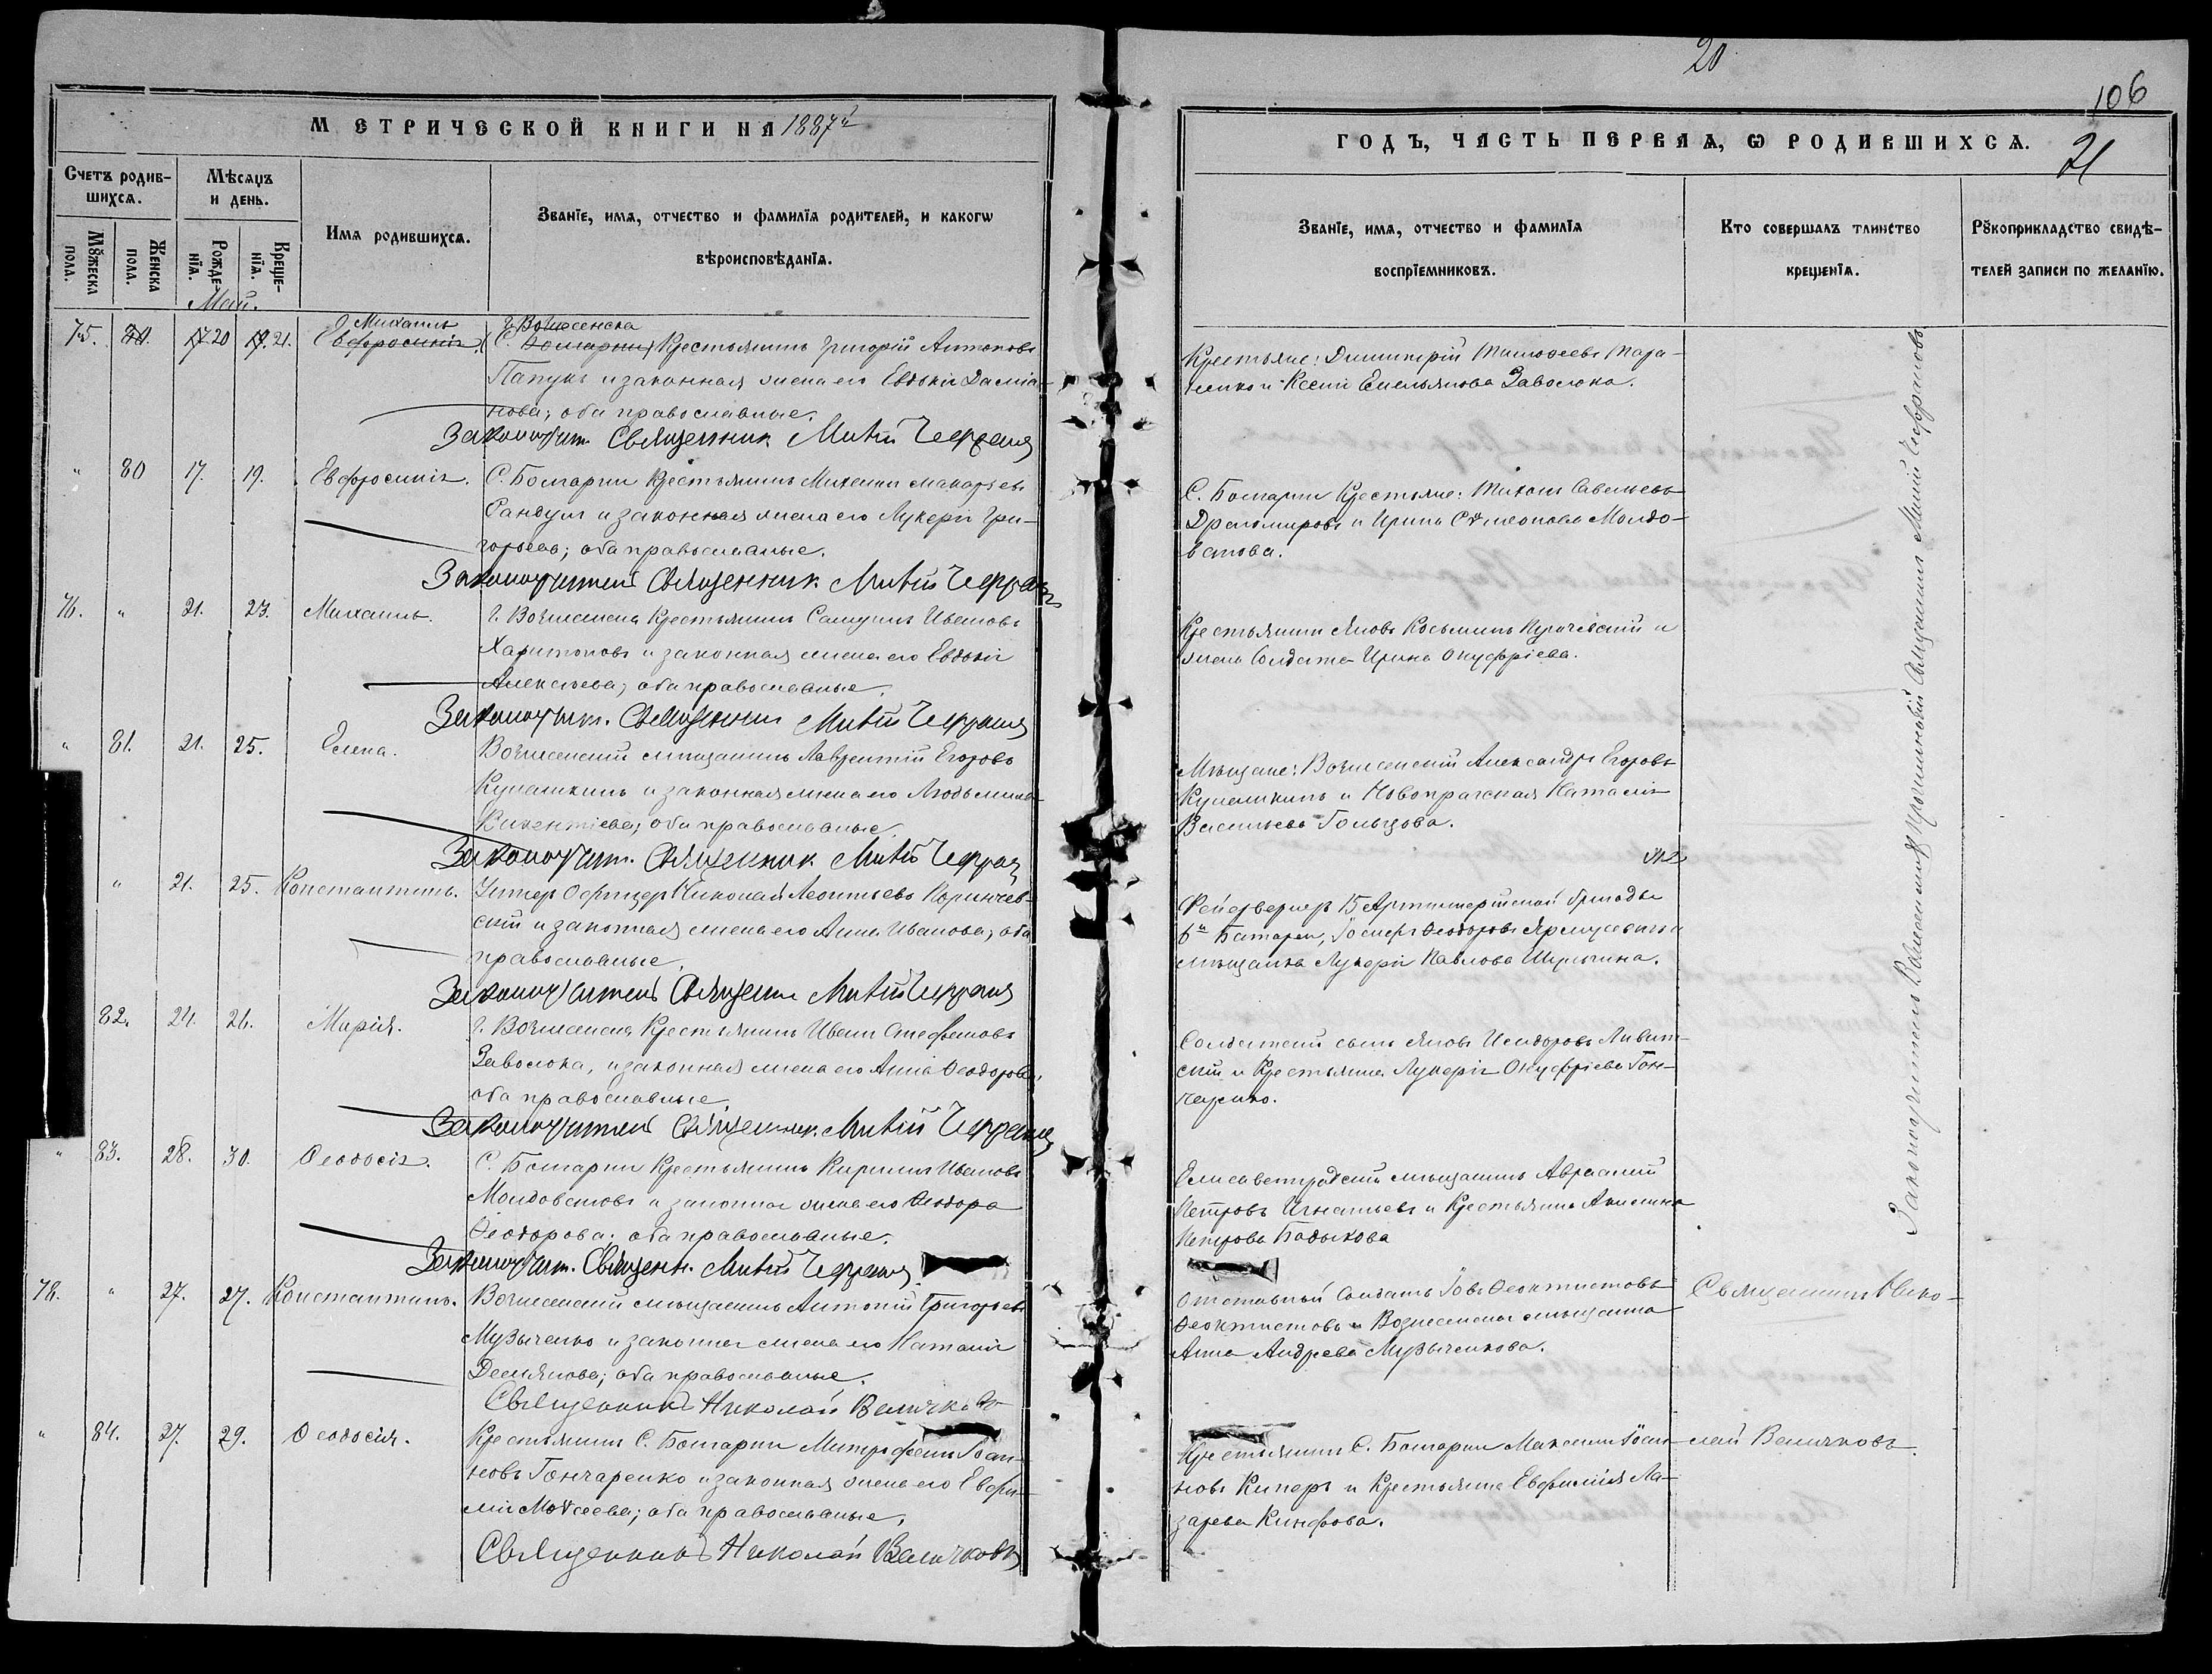 20
106
21
МЕТРИЧЕСКОЙ КНИГИ НА 1887й
ГОДЪ, ЧАСТЬ ПЕРВАѦ, Ѡ РОДИВШИХСѦ.
Счетъ родив-
шихсѧ.
Мѣсѧцъ
и день.
Имѧ родившихсѧ.
Званїе, имѧ, отчество и фамилїѧ родителей, и какогѡ
вѣроисповѣданїѧ.
Мꙋжеска
пола.
Женска
пола.
Рожде-
нїѧ.
Креще-
нїѧ.
Званїе, имѧ, отчество и фамилїѧ
воспрїемниковъ.
Кто совершалъ таинство
крещенїѧ.
Рꙋкоприкладство свидѣ-
телей записи по желанїю.
Май.
Михаилъ
г. Вознесенска
75. 17 20 19. 21. Евфросинія. С. Болгарки Крестьянинъ Григорій Антоновъ
Папукъ и законная жена его Евдокія Даміа-
нова; оба православные.
Законоучит. Священник
Крестьяне: Димитрій Тимофеевъ Тара-
ненко и Ксенія Емельянова Заволока.
" 80 17. 19. Евфросинія. С. Болгарки Крестьянинъ Михаилъ Макарьевъ
Сандулъ и законная жена его Лукерія Гри-
горьева; оба православные.
Законоучитель Священник
С. Болгарки Крестьяне: Тихонъ Савельевъ
Драгомировъ и Ирина Симеонова Молдо-
ванова.
76. " 21. 23. Михаилъ. г. Вознесенска Крестьянинъ Самуилъ Ивановъ
Харитоновъ и законная жена его Евдокія
Алексѣева; оба православные.
Законоучит. Священник
Крестьянинъ Яковъ Косьминъ и
жена Солдата Ирина Онуфріева.
" 81. 21. 25. Елена. Вознесенскій мѣщанинъ Лаврентій Егоровъ
Кулашкинъ и законная жена его Людьмила
Викентіева; оба православные.
Законоучит. Священник
Мѣщане: Вознесенскій Александръ Егоровъ
Кулашкинъ и Новопражская Наталія
Васильева Гольцова.
" 21. 25. Константинъ. Унтеръ Офицеръ Николай Леонтьевъ Коринчев-
скій и законная жена его Анна Иванова; оба
православные.
Законоучитель Священник
Фейерверкеръ 15 Артиллерійской бригады
6й Батареи, Іосифъ Феодоровъ и
мѣщанка Лукерія Павлова Шулькина.
82. 24. 26. Марія. г. Вознесенска Крестьянинъ Иванъ Стефановъ
Заволока, и законная жена его Анна Феодорова,
оба православные.
Законоучитель Священник
Солдатскій сынъ Яковъ Исидоровъ Ливит-
скій и Крестьянка Лукерія Онуфріева Гон-
чаренко.
" 83. 28. 30. Феодосія. С. Болгарки Крестьянинъ Кириллъ Ивановъ
Молдовановъ и законная жена его Феодора
Феодорова; оба православные.
Законоучит. Священн.
Елисаветградскій мѣщанинъ Авраамій
Петровъ Игнатьевъ и Крестьянка Акилина
Петрова Бадыкова
78. " 27. 27. Константинъ. Вознесенскій мѣщанинъ Антоній Григорьевъ
Музыченко и законная жена его Наталія
Демьянова; оба православные.
Священникъ Николай Величковъ
Отставный Солдатъ Іовъ Феоктистовъ
Феоктистовъ и Вознесенская мѣщанка
Анна Андреева Музыченкова.
Священникъ Нико-
лай Величковъ.
" 84. 27. 29. Феодосія. Крестьянинъ С. Болгарки Митрофанъ Іоан-
новъ Гончаренко и законная жена его Евфи-
мія Моѵсеева; оба православные.
Священникъ Николай Величковъ
Крестьянинъ С. Болгарки Максимъ Іоан-
новъ Киперъ и Крестьянка Евфимія Ла-
зарева Кинфова.